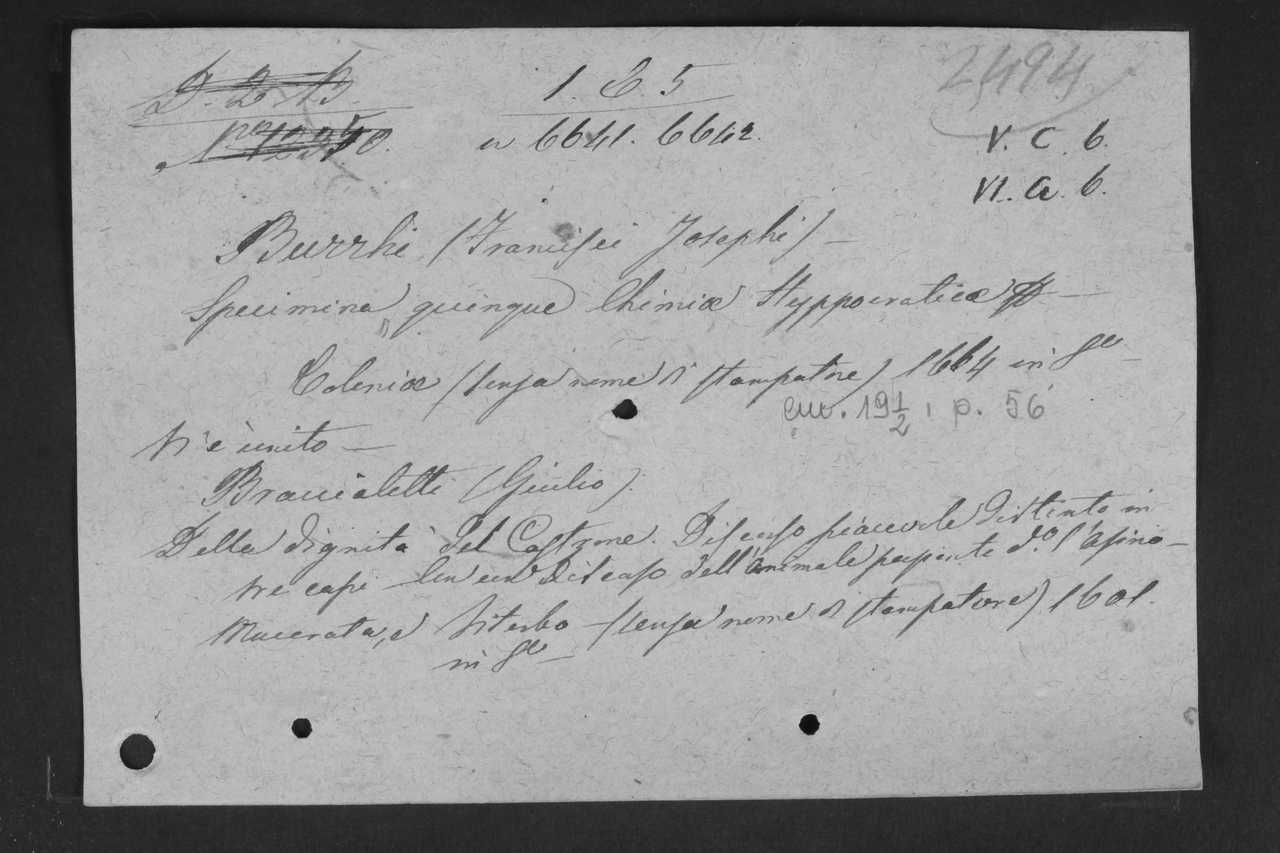 D. 2. 13. 1. E. 5 2494
No 12240. in 6641. 6642. V. C. 6.
VI. a. 6.
Burrhi (Francisci Josephi) —
Specimina quinque Chimiæ Hyppocraticæ —
Coloniæ (senza nome di stampatore) 1664 in 8° —
cuv. 19 1/2, p. 56
V'è unito —
Braccialetti (Giulio).
Della dignità del Castrone. Discorso piacevole distinto in
tre capi con un Discorso dell'Animale d.° l'Asino —
Macerata, e Viterbo — (senza nome di stampatore) 1601.
in 8° —